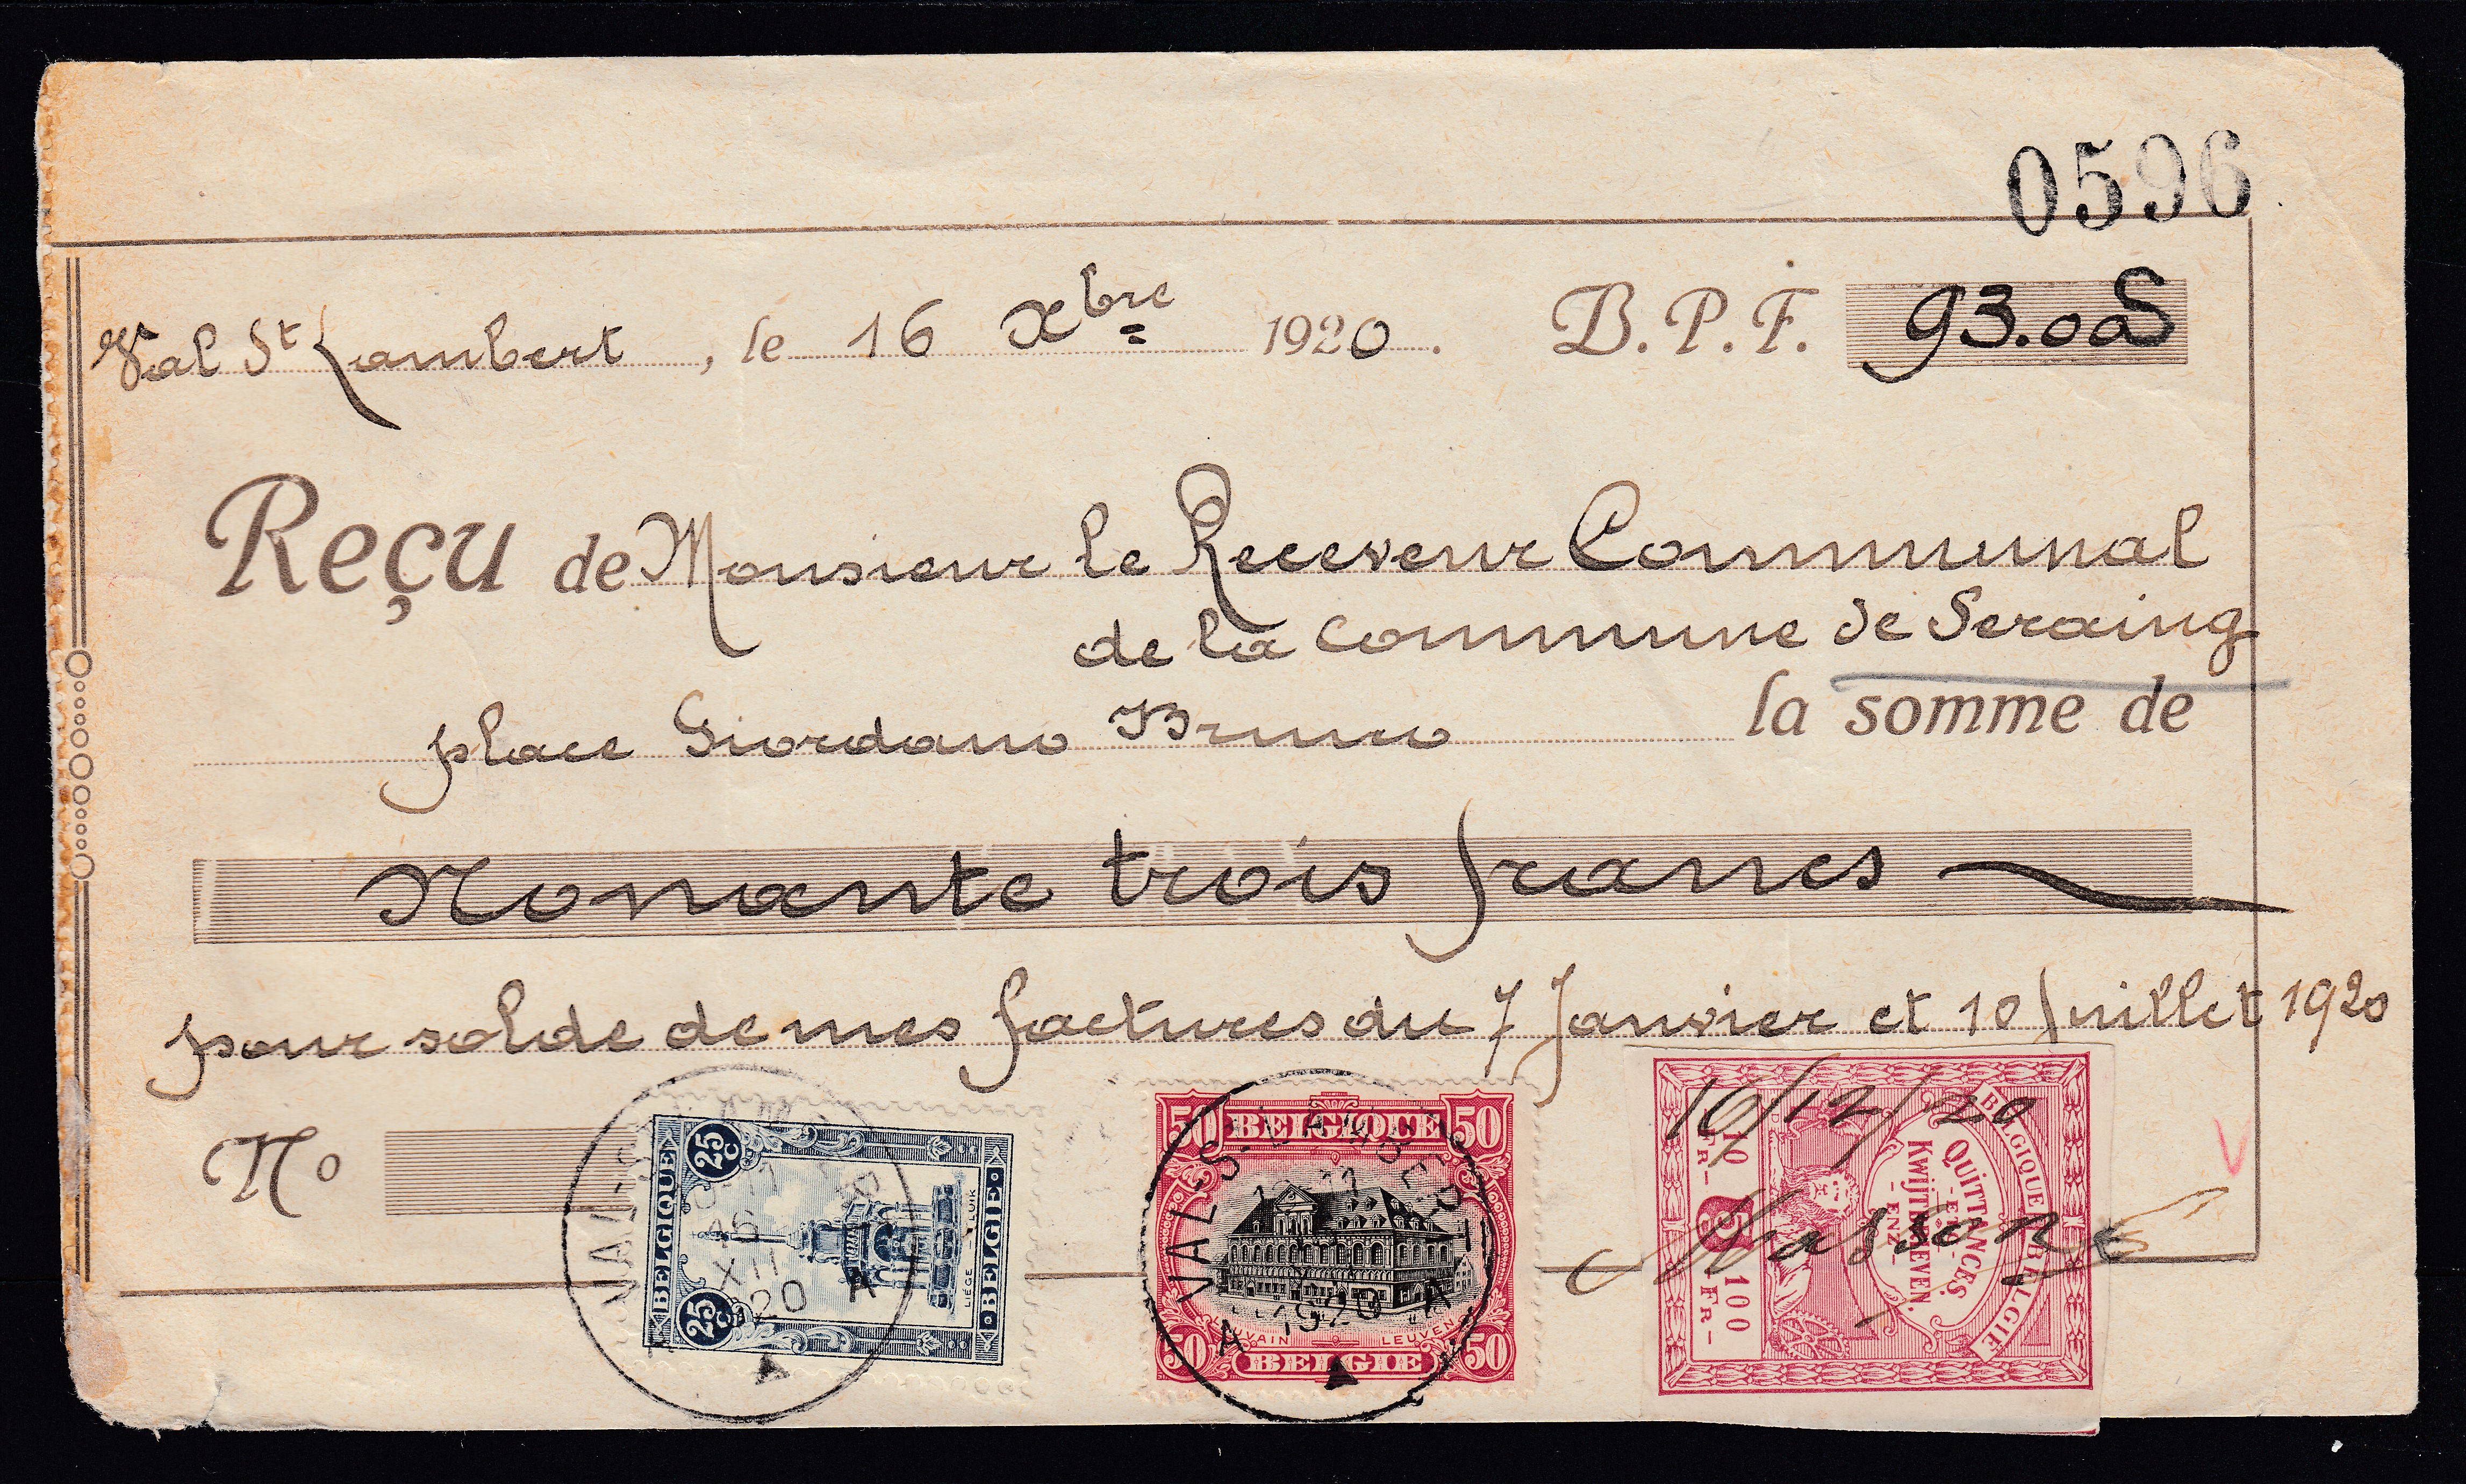 0596
Val St Lambert, le 16 Xbre 1920. B.P.F. 93.00
Reçu de Monsieur le Receveur Communal
de la Commune de Seraing
place Giordano Bruno la somme de
Nonante trois francs
pour solde de mes factures du 7 Janvier et 10 Juillet 1920
No
BELGIQUE 25 C 25 C LIÈGE - LUIK BELGIE
VAL-S
16
XII
20
A
50 BELGIQUE 50
LOUVAIN LEUVEN
50 BELGIE 50
VAL-S-LAMBERT
1920
A A
16/12/20
BELGIQUE BELGIE
QUITTANCES,
- ETC -
KWIJTBRIEVEN,
- ENZ -
10 FR - 5 C 100 FR -